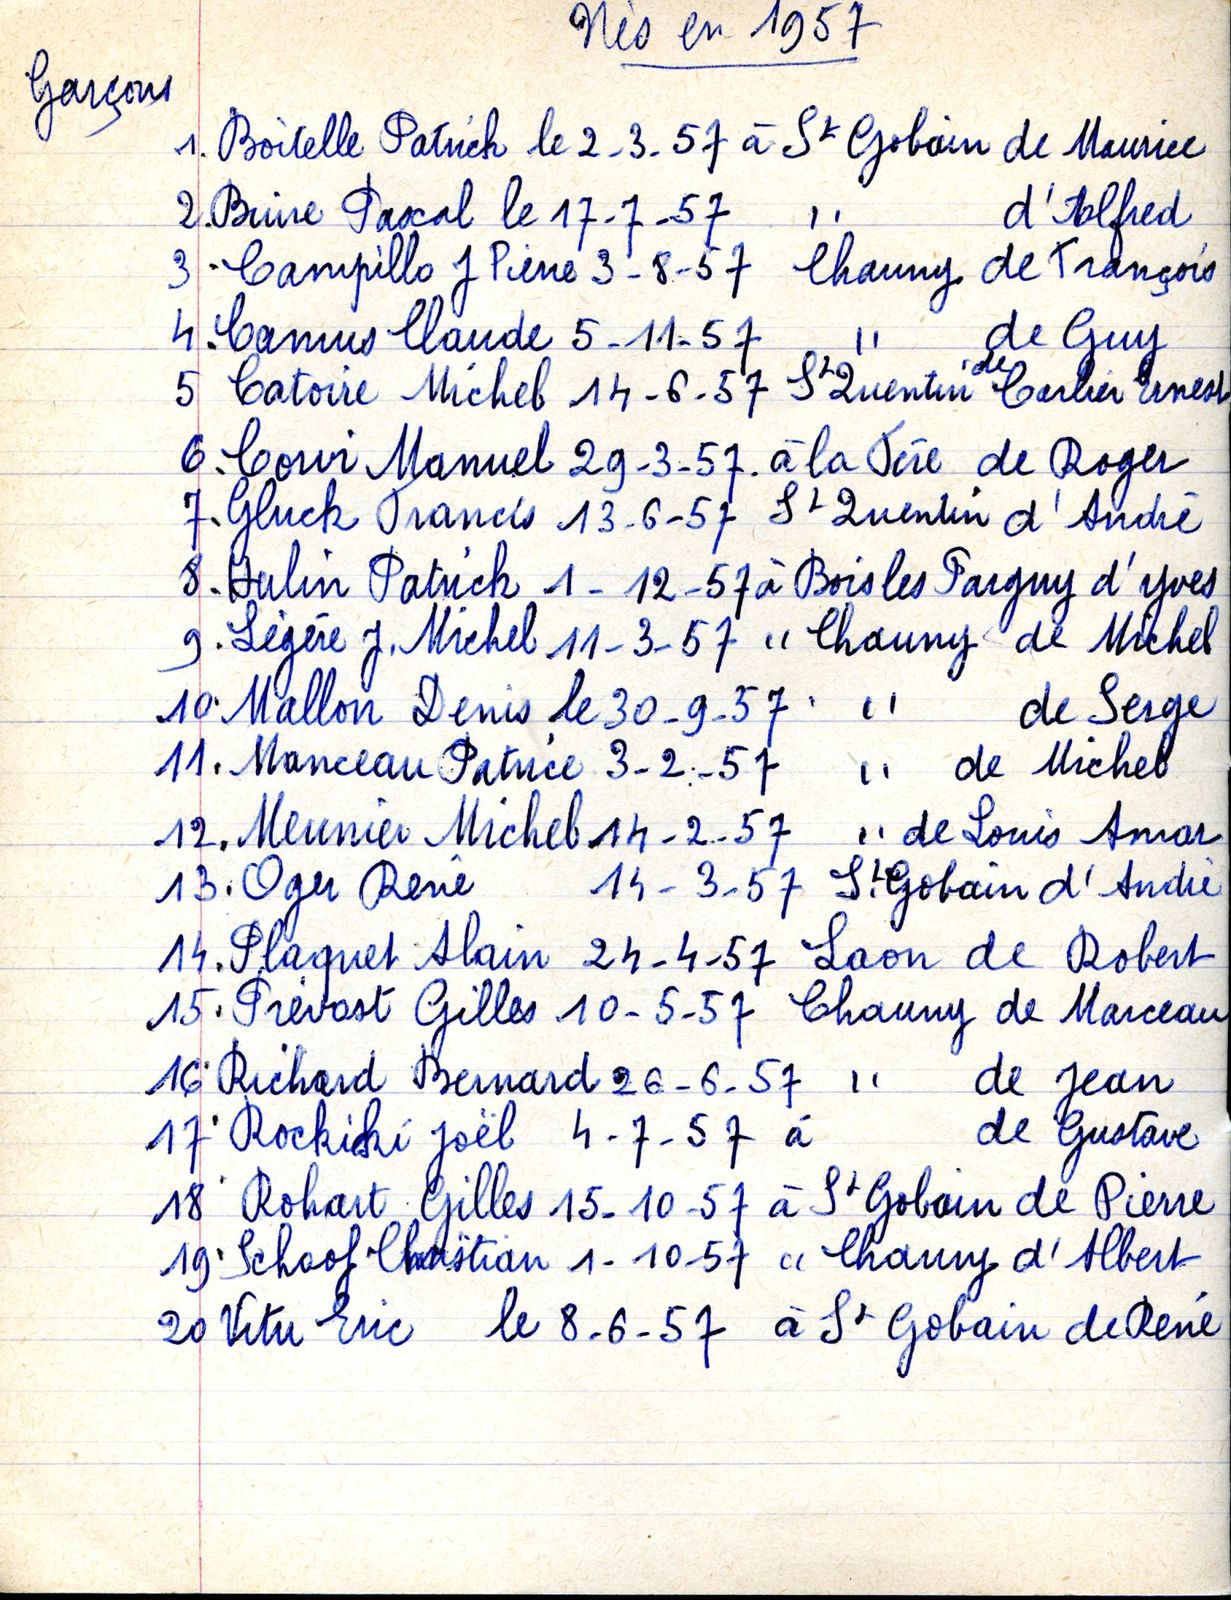 Nés en 1957
Garçons
1. Boitelle Patrick le 2-3-57 à St Gobain de Maurice
2. Buire Pascal le 17-7-57 " d'Alfred
3. Campillo J Pierre 3-8-57 Chauny de François
4. Camus Claude 5-11-57 " de Guy
5 Catoire Michel 14-6-57 St Quentin de Carlier Ernest
6. Corvi Manuel 29-3-57. à la Fère de Roger
7. Gluck Francis 13-6-57 St Quentin d'André
8. Julin Patrick 1-12-57 à Bois les Pargny d'yves
9. Légère J. Michel 11-3-57 " Chauny de Michel
10. Mallon Denis le 30-9-57 " de Serge
11. Manceau Patrice 3-2-57 " de Michel
12. Meunier Michel 14-2-57 " de Louis Amar
13. Oger René 14-3-57 St Gobain d'André
14. Plaquet Alain 24-4-57 Laon de Robert
15. Prévost Gilles 10-5-57 Chauny de Marceau
16. Richard Bernard 26-6-57 " de Jean
17. Joël 4-7-57 à de Gustave
18 Rohart Gilles 15-10-57 à St Gobain de Pierre
19. Schoof Christian 1-10-57 " Chauny d'Albert
20 Vitu Eric le 8-6-57 à St Gobain de René